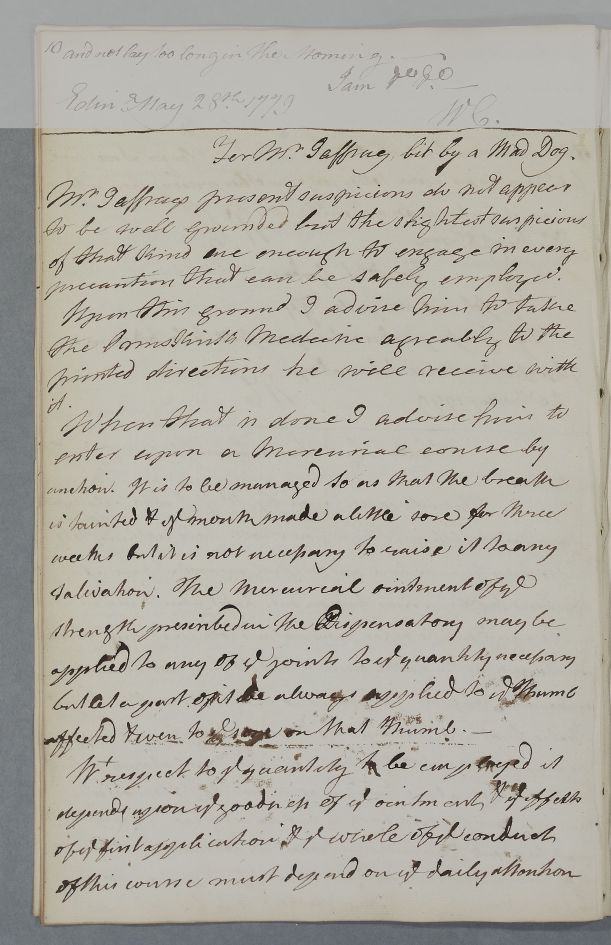 10 and not lay too long in the Morning.
I am &c &c
Edin r May 28th 1779
WC.
For Mr. Jaffray bit by a Mad Dog.
Mr. Jaffrays present suspicions do not appear
to be well grounded but the slightest suspicions
of that kind are enough to engage in every
precaution that can be safely employd.
Upon this ground I advise him to take
the Ormskirk Medecine agreably to the
printed directions he will receive with
it.
When that is done I advise him to
enter upon a Mercurial course by
unction. It is to be managed so as that the breath
is tainted & ye mouth made a little sore for three
weeks but it is not necessary to raise it to any
Salivation. The Mercurial ointment of ye
strength prescribed in the Dispensatory may be
applied to any of ye joints to ye quantity necessary
but let a part of it be always applied to ye Thumb
affected & even to ye on that Thumb. —
Wt respect to ye quantity to be employed it
depends upon ye goodness of ye ointment & ye effects
of ye first application & ye whole of ye conduct
of this course must depend on ye daily attention